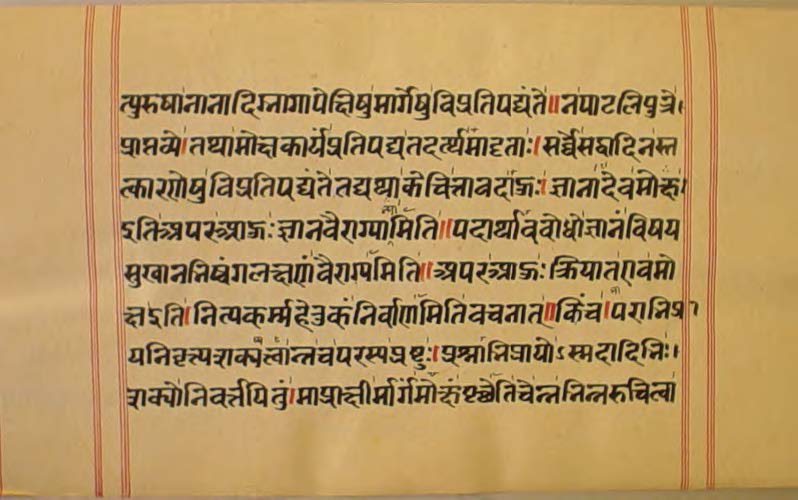 त्पुरुषाानानादिग्नागापेक्षिषुमार्गेषुविप्रतिपद्यंते॥नपाटलिपुत्रे।
प्राप्तव्ये।तथामोक्षकार्यंप्रतिपद्यतदर्त्थमादृताः।सर्व्वेसद्वादिनस्त
त्कारणेषुविप्रतिपद्यंतेतद्यथाकेचित्तावदाऊः।ज्ञानादेवमोक्षः।
इतिअपरत्राऊःज्ञानवैराग्याभ्यामिति॥पदार्थावबोधोज्ञानंविषय
सुखाननिष्वंगलक्षणंवैराग्यमिति॥अपरत्राऊःक्रियातएवमो
क्षइति।नित्यकर्म्महेतुकंनिर्वाणमितिवचनात्॥किंच।पराभिप्रा
यनिवृत्त्यशक्यत्वान्नचपरस्यप्रष्टुः।प्रश्नाभिप्रायोऽस्मदादिभिः।
शक्योनिवर्त्तयितुं।माप्राक्षीर्मार्गंमोक्षंपृच्छेतिचेन्नभिन्नरुचित्वा